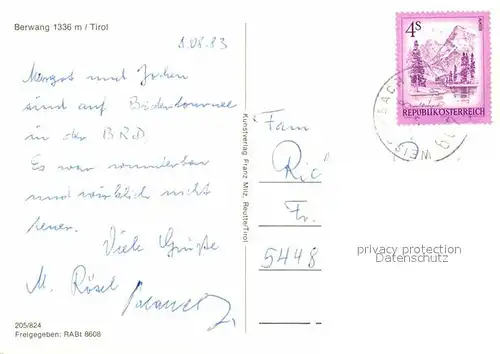 Berwang 1336 m / Tirol
9.08.83
Margot und Jochen
sind auf Bäderbummel
in der BRD
Es war wunderbar
und wirklich nicht
teuer.
Viele Grüße
M. Rösel
205/824
Freigegeben: RABt 8608
Kunstverlag Franz Milz, Reutte/Tirol
4s
REPUBLIK ÖSTERREICH
Fam
Ric
Fr.
5448
privacy protection
Datenschutz